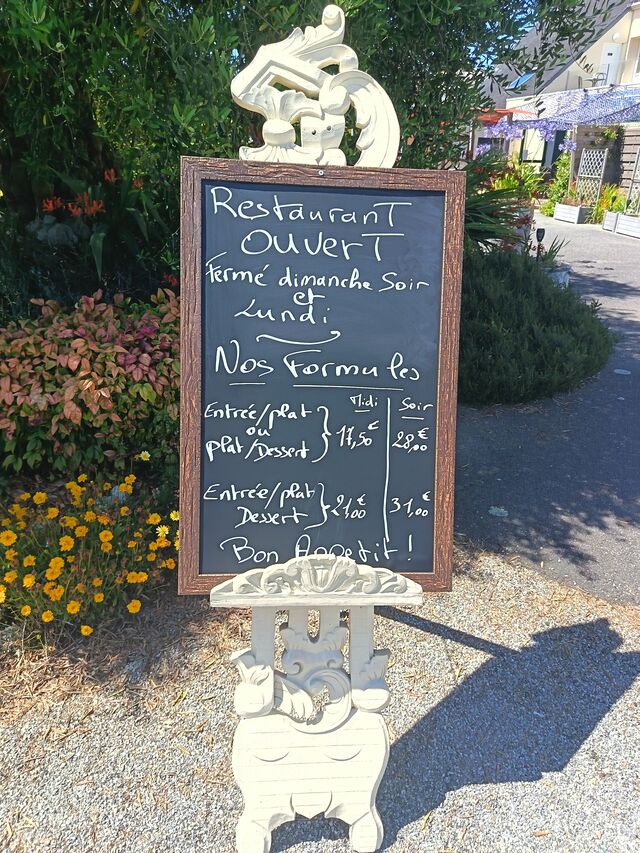 Restaurant
Ouvert
Fermé dimanche Soir
et
Lundi
Nos Formules
Midi Soir
Entrée/plat
ou
plat/Dessert } 17,50€ 28,00€
Entrée/plat
Dessert } 21,00€ 31,00€
Bon Appetit !